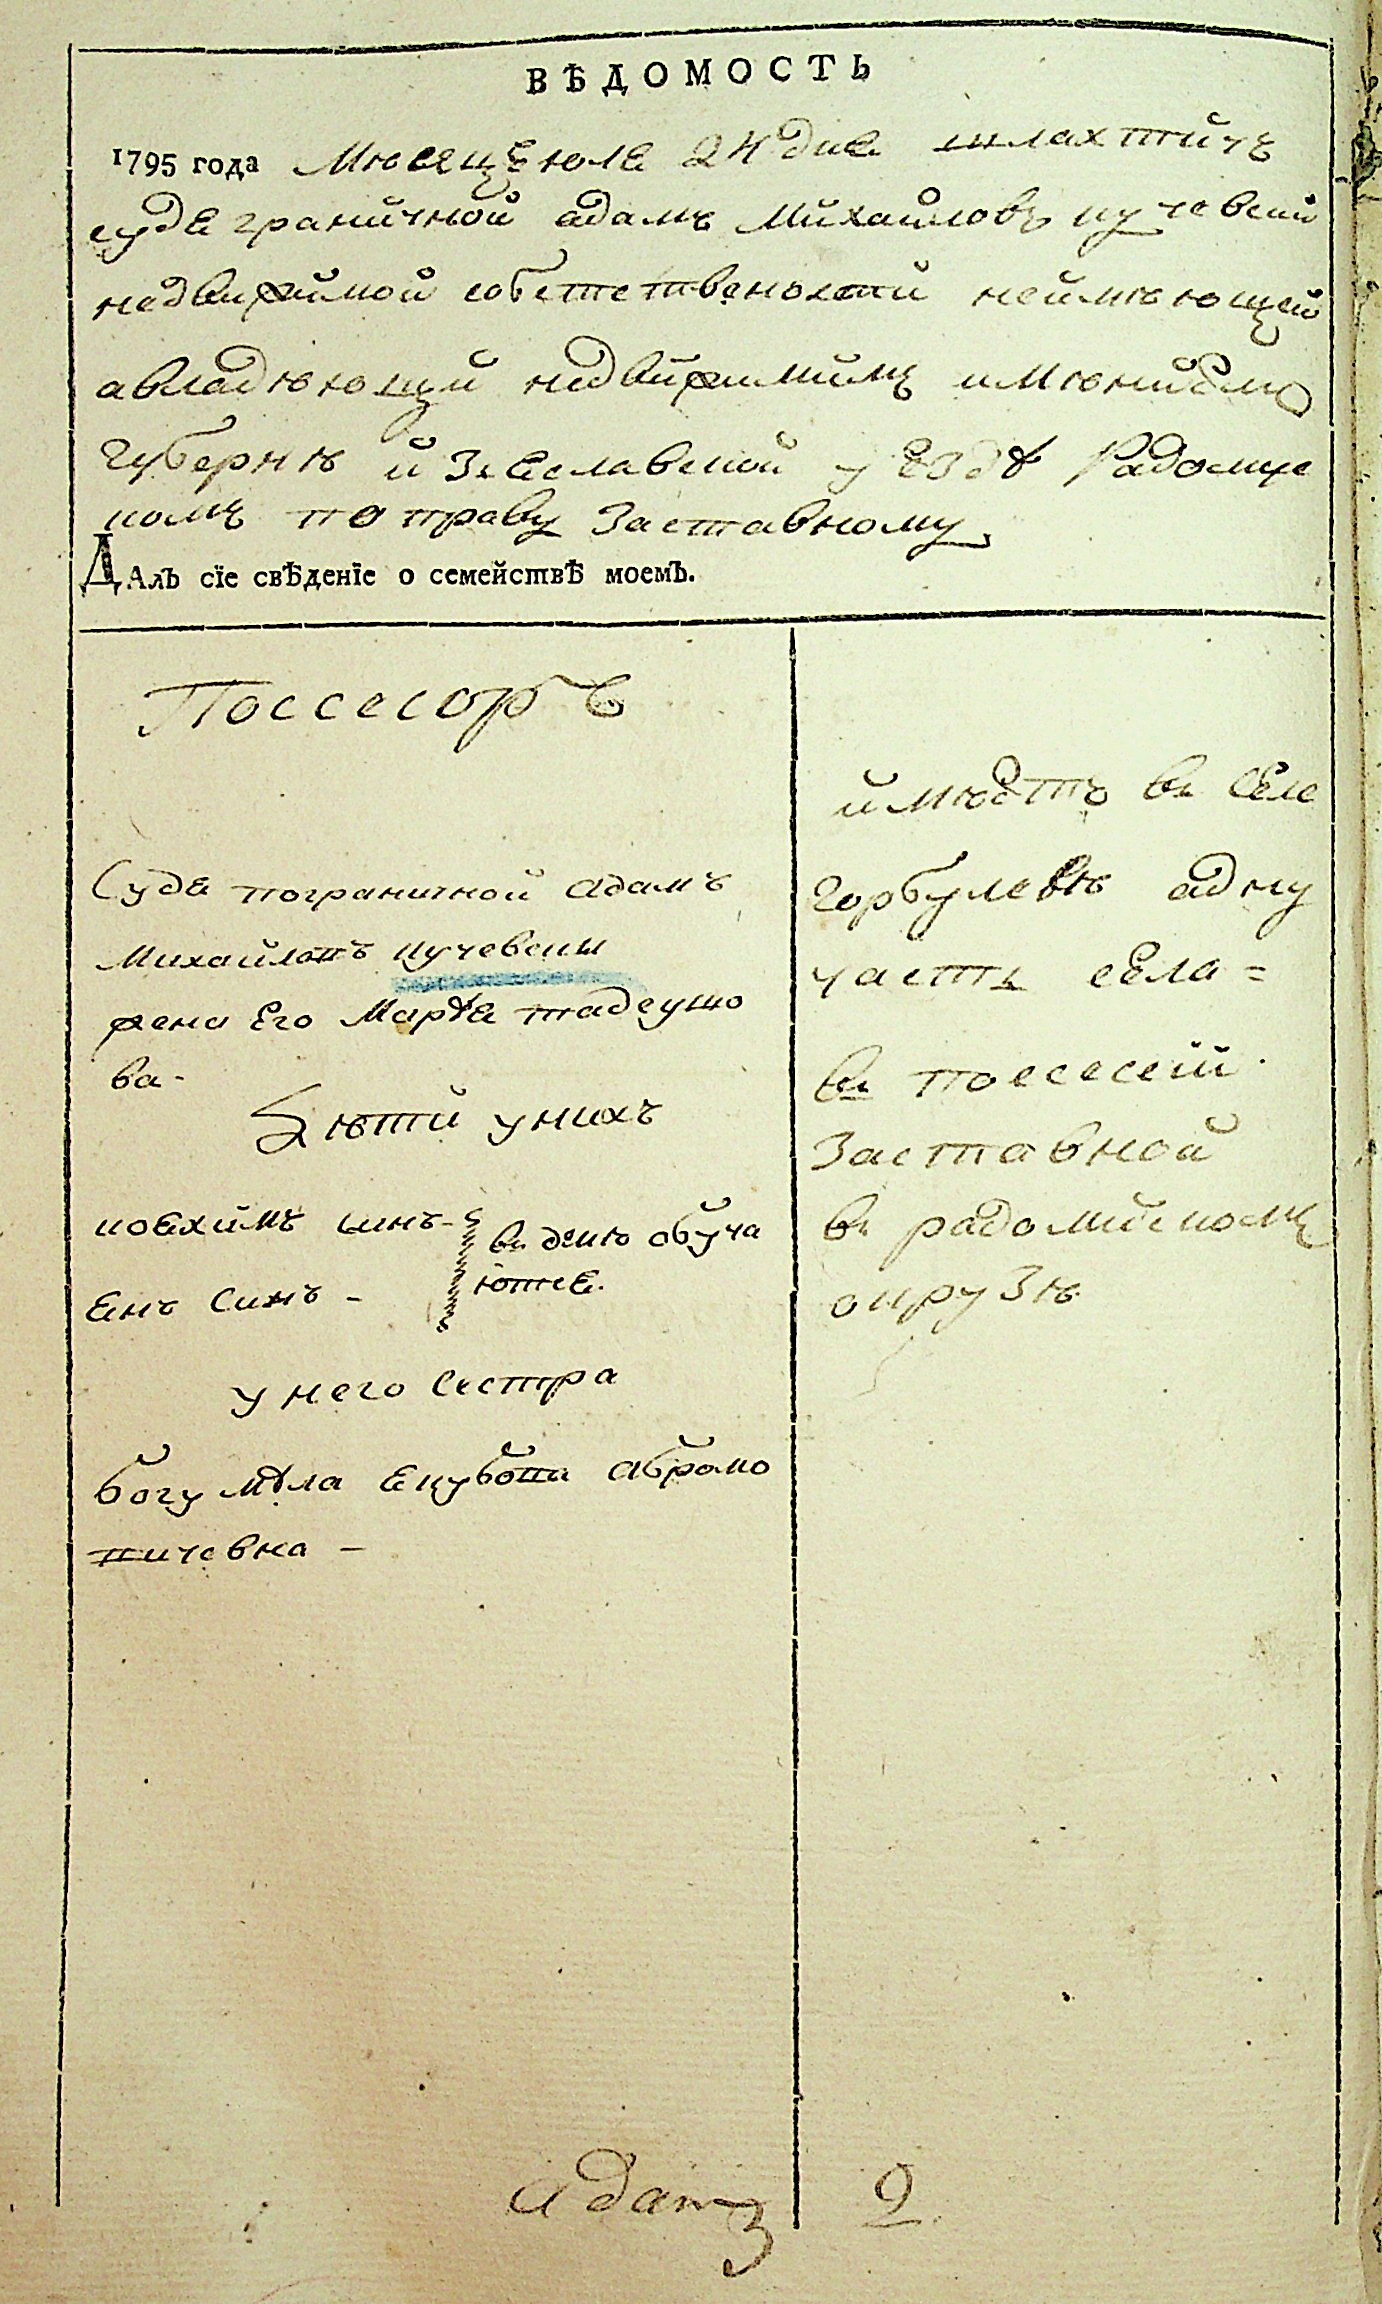 ВѢДОМОСТЬ
1795 года Мѣсяцъ юля 24 дня шляхтичъ
судя граничной адамъ Михайловъ кучевски
недвижимой собственности неимѣющей
авладѣющи недвижимимъ имѣниемъ
губернѣ и Зяславской уездѣ Радомис
комъ по праву Заставному
ДАлъ сїе свѣденїе о семействѣ моемъ.
Поссесоръ
Судя пограничной Адамъ
Михайловъ кучевски
жена Его Марѳа тадеушо
ва -
Дѣти у нихъ
иоахимъ синъ -
Янъ Синъ -
въ дому обуча
ются.
у него Сестра
богумила Якубова Абрамо
вичевна -
имѣетъ въ Селе
Горбулевѣ адну
часть села =
въ посесеіи
Заставной
въ радомискомъ
окрузѣ
Адамъ